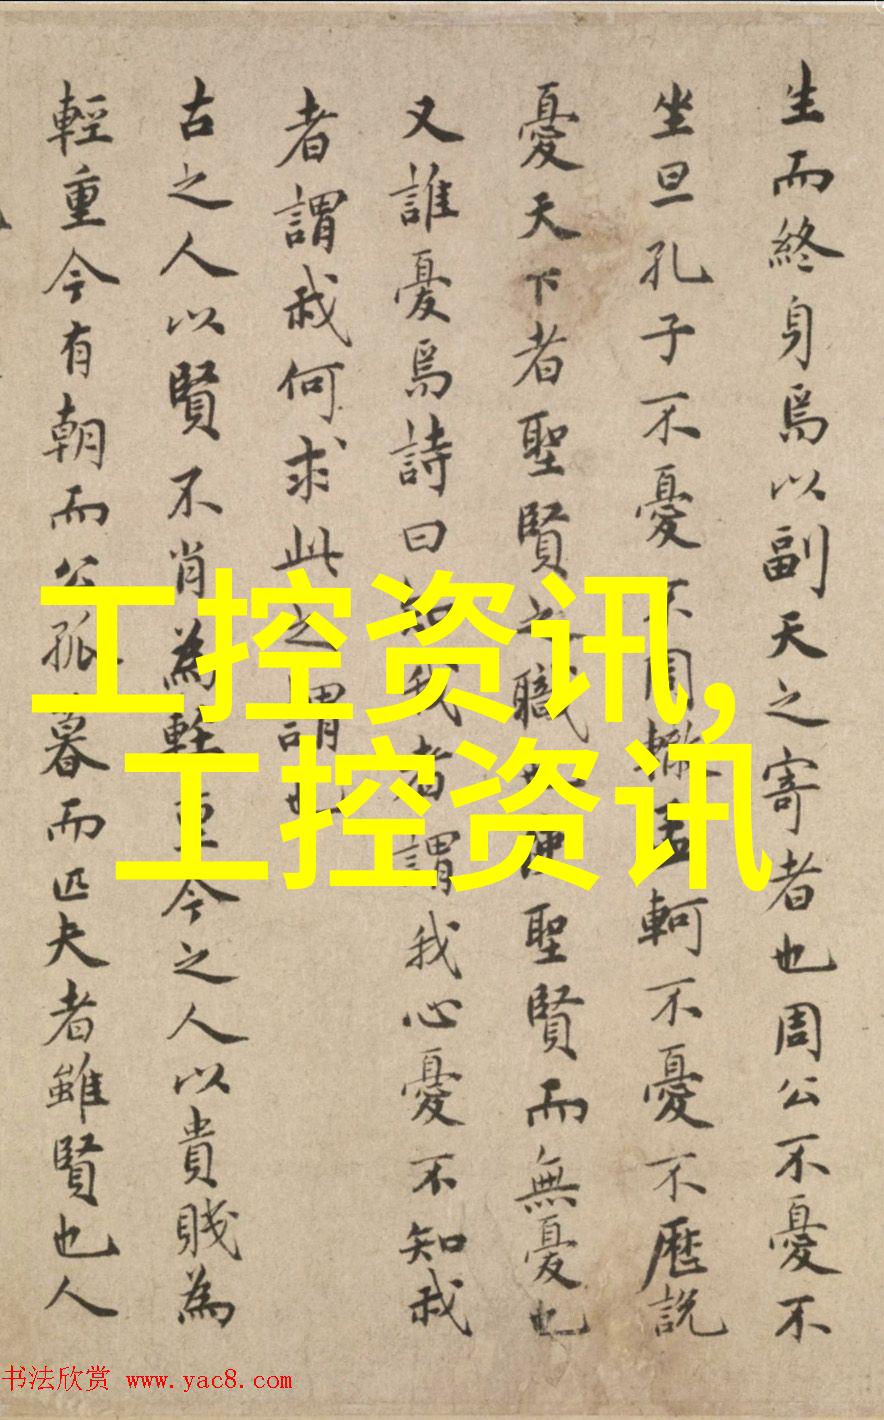 生而終身焉以副天之寄者也周公不憂不
坐旦孔子不憂不周轍孟軻不憂不歷說
憂天下者聖賢之職也使聖賢而無憂也
又誰憂焉詩曰知我者謂我心憂不知我
者謂我何求此之謂也
古之人以賢不肖為輕重今之人以貴賤為
輕重今有朝而公孤暮而匹夫者雖賢也人
工控资讯,
工控资讯
书法欣赏 www.yac8.com